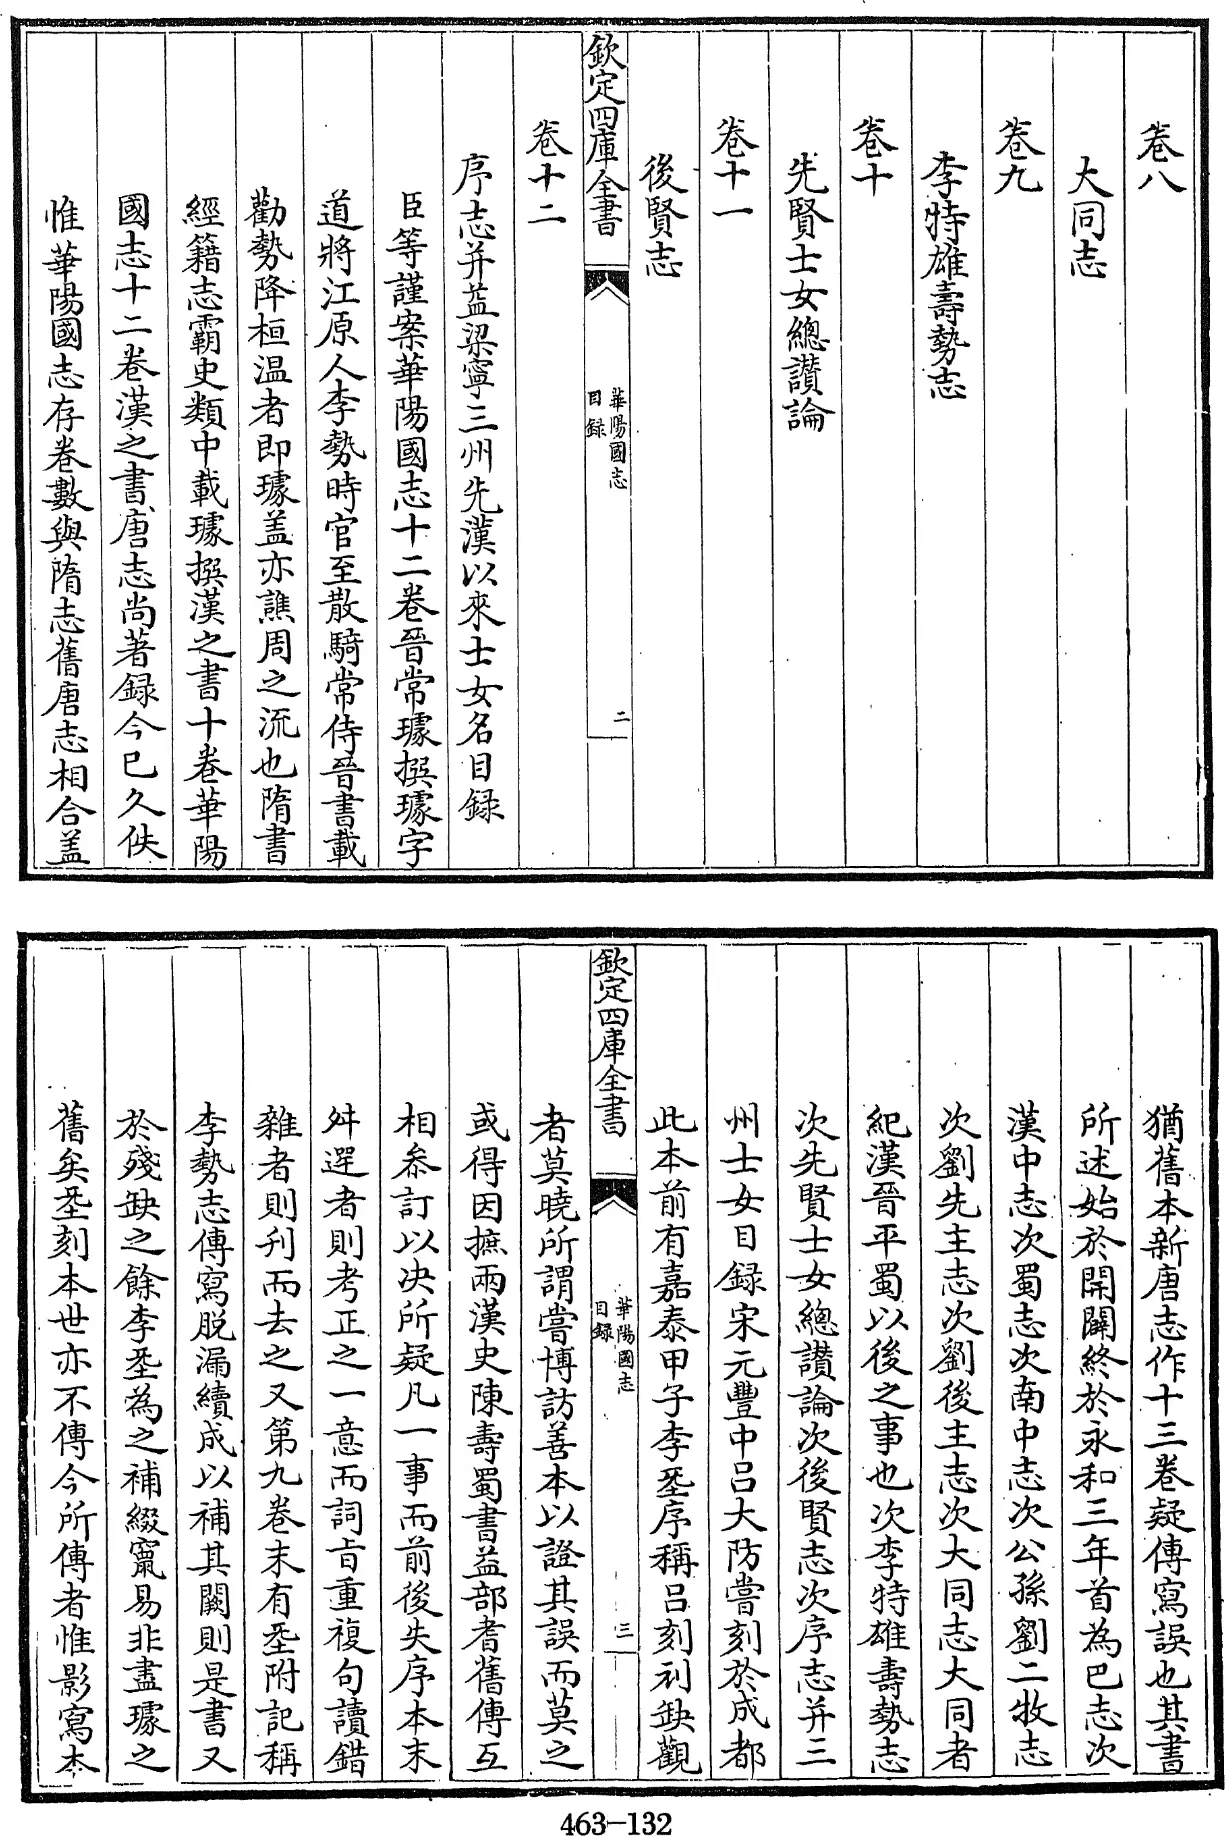 卷八
大同志
卷九
李特雄壽勢志
卷十
先賢士女總讚論
卷十一
後賢志
欽定四庫全書
華陽國志
目録
二
卷十二
序志并益梁寧三州先漢以來士女名目録
臣等謹案華陽國志十二卷晉常璩撰璩字
道將江原人李勢時官至散騎常侍晉書載
勸勢降桓温者即璩盖亦譙周之流也隋書
經籍志霸史類中載璩撰漢之書十卷華陽
國志十二卷漢之書唐志尚著録今已久佚
惟華陽國志存卷數與隋志舊唐志相合盖
猶舊本新唐志作十三卷疑傳寫誤也其書
所述始於開闢終於永和三年首為巴志次
漢中志次蜀志次南中志次公孫劉二牧志
次劉先主志次劉後主志次大同志大同者
紀漢晉平蜀以後之事也次李特雄壽勢志
次先賢士女總讚論次後賢志次序志并三
州士女目録宋元豐中吕大防嘗刻於成都
此本前有嘉泰甲子李㽦序稱吕刻刓缺觀
欽定四庫全書
華陽國志
目録
三
者莫曉所謂嘗博訪善本以證其誤而莫之
或得因摭兩漢史陳壽蜀書益部耆舊傳互
相叅訂以决所疑凡一事而前後失序本末
舛逕者則考正之一意而詞旨重複句讀錯
雜者則刋而去之又第九卷末有㽦附記稱
李勢志傳寫脱漏續成以補其闕則是書又
於殘缺之餘李㽦為之補綴竄易非盡璩之
舊矣㽦刻本世亦不傳今所傳者惟影寫本
463-132